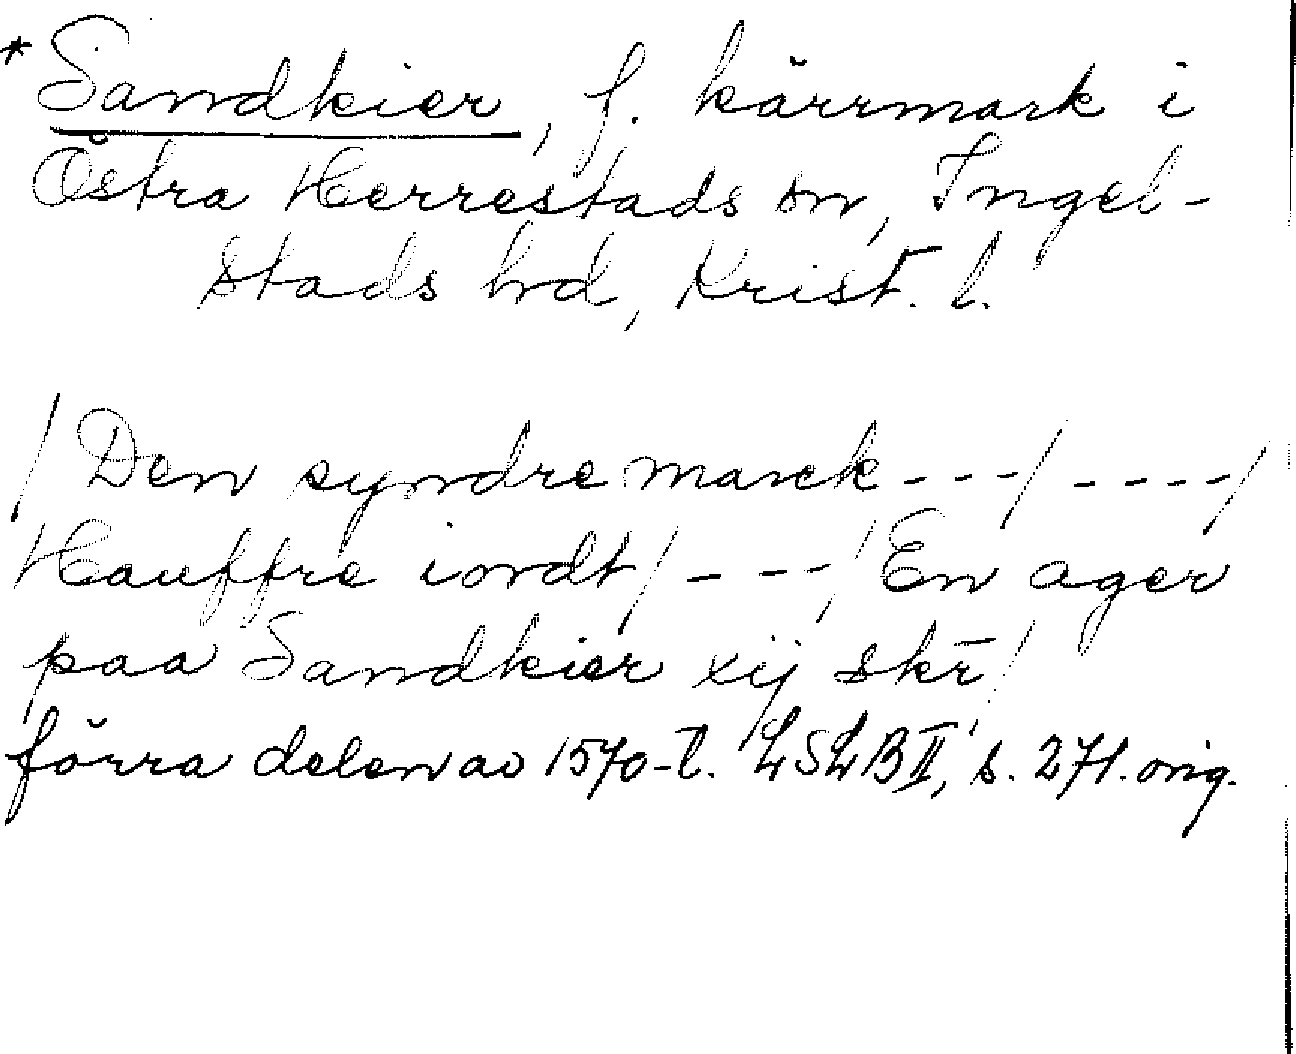 *Sandkier, f. kärrmark i
Östra Herrestads sn, Ingel-
stads hd, Krist. l.
/Den syndre marck---/----/
Hauffre iordt/---/En ager
paa Sandkier xij skr̄/
förra delen av 1570-t. LSLB II, s. 271. orig.